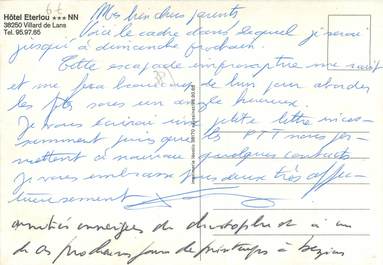 6€
Hôtel Eterlou ★★★ NN
38250 Villard de Lans
Tel. 95.97.65
Mes bien chers parents
Voici le cadre dans lequel je serai
jusqu'à dimanche prochain.
Cette escapade improvisée me ravit
et me fera beaucoup de bien pour aborder
les sous un angle heureux.
Je vous écrirai une petite lettre
puis que les PTT nous per-
mettent à nouveau quelques contacts
Je vous embrasse tous deux très affec-
tueusement
amitiés de christophe et à un
de ces prochains jours de printemps à